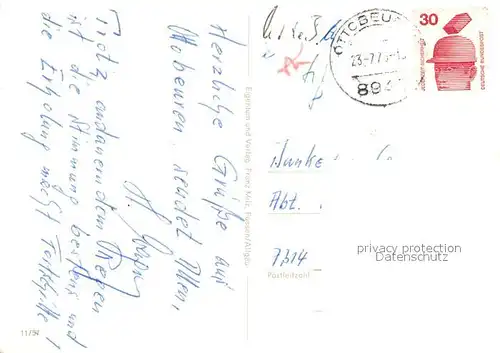 Herzliche Grüße aus
Ottobeuren sendet Ihnen,
Trotz andauerndem Regen
ist die Stimmung bestens und
die Erholung macht Fortschritte!
Eigentum und Verlag Franz Milz, Füssen/Allgäu
11/54
OTTOBEU
23.-7.7
894
30
JEDERZEIT SICHERHEIT
DEUTSCHE BUNDESPOST
Abt.
7314
Postleitzahl
privacy protection
Datenschutz